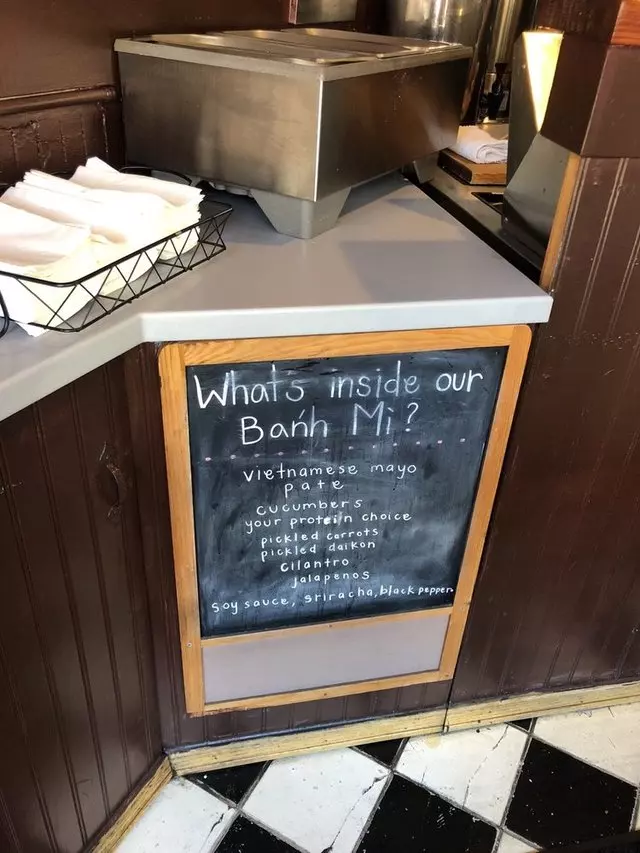 What's inside our
Bańh Mì?
vietnamese mayo
pate
cucumbers
your protein choice
pickled carrots
pickled daikon
cilantro
jalapenos
soy sauce, sriracha, black pepper